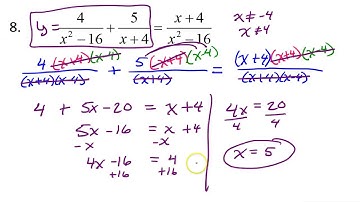 8. y = 4/(x² − 16) + 5/(x + 4) = (x + 4)/(x² − 16)    x ≠ −4
x ≠ 4
4 (x+4)(x−4)/((x+4)(x−4)) + 5 (x+4)(x−4)/(x+4) = (x+4)(x+4)(x−4)/((x+4)(x−4))
4 + 5x − 20 = x + 4
5x − 16 = x + 4
−x −x
4x − 16 = 4
+16 +16
4x = 20
4 4
x = 5